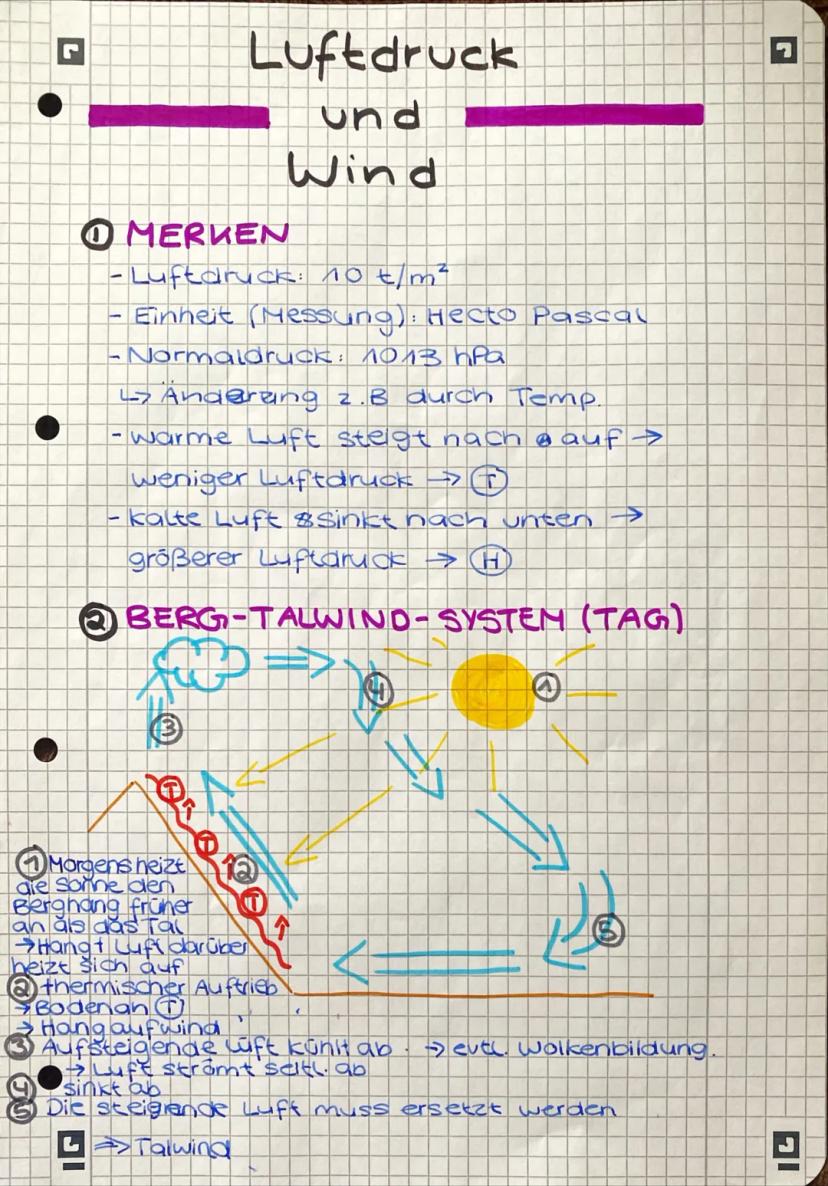 Luftdruck
und
Wind
① MERKEN
- Luftdruck: 10 t/m²
- Einheit (Messung): Hecto Pascal
- Normaldruck: 1013 hPa
↳ Änderung z.B durch Temp.
- warme Luft steigt nach auf →
weniger Luftdruck → Ⓣ
- kalte Luft sinkt nach unten →
größerer Luftdruck → Ⓗ
② BERG-TALWIND-SYSTEM (TAG)
④
①
③
T
T
②
T
⑤
① Morgens heizt
die Sonne den
Berghang früher
an als das Tal
→ Hang + Luft darüber
heizt sich auf
② thermischer Auftrieb
→ Bodenan Ⓣ
→ Hangaufwind
③ Aufsteigende Luft kühlt ab. → evtl. Wolkenbildung.
→ Luft strömt seitl. ab
④ sinkt ab
⑤ Die steigende Luft muss ersetzt werden
⇒ Talwind